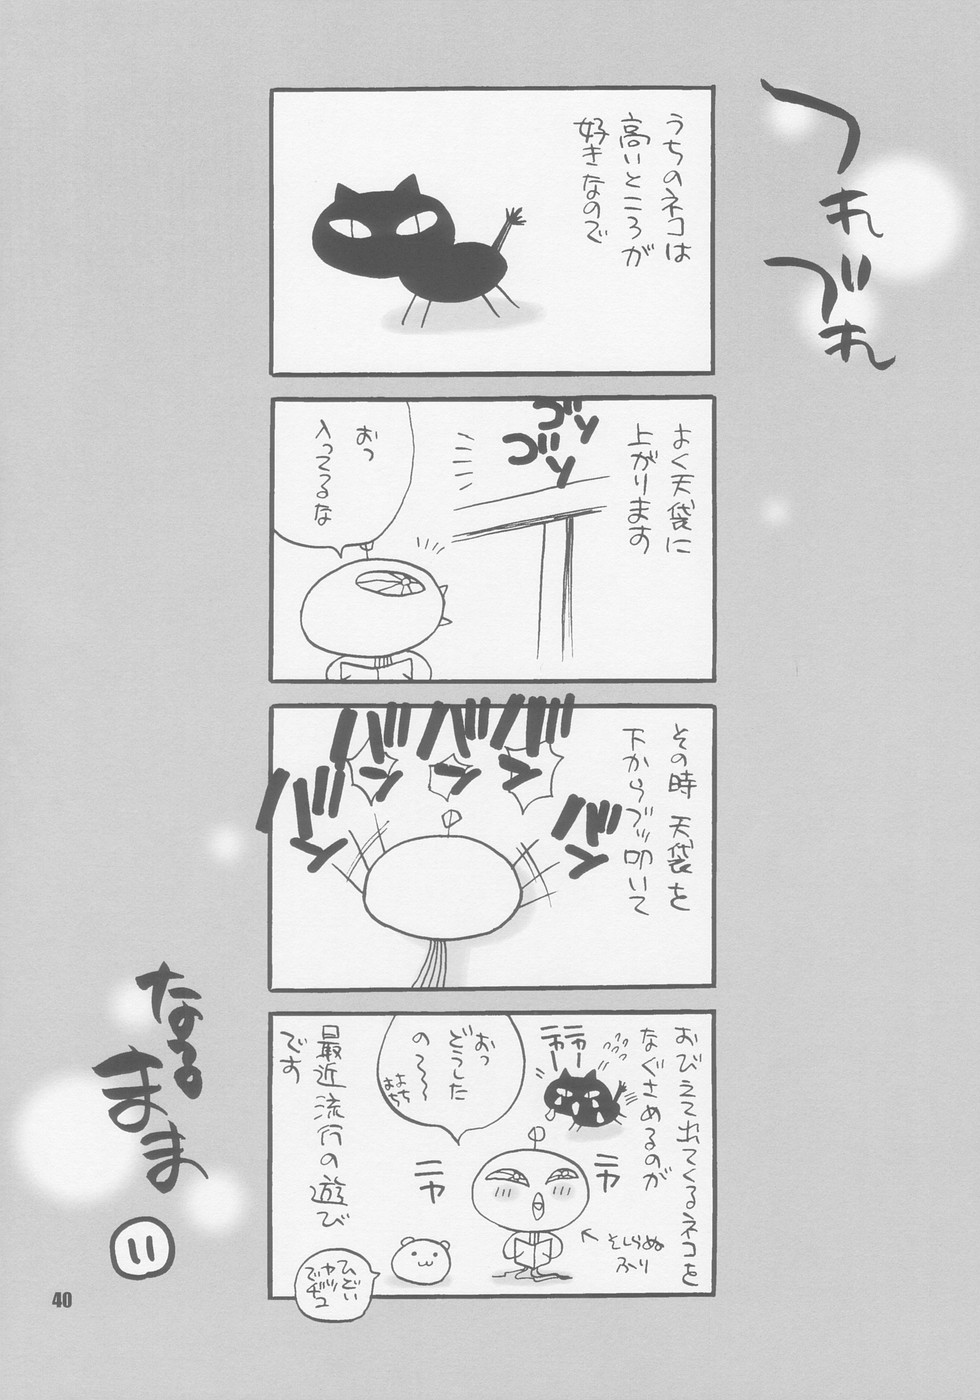 つれづれ
なるまま
11
うちのネコは
高いところが
好きなので
よく天袋に
上がります
ゴソ
ゴソ
おっ
入ってるな
その時 天袋を
下からブッ叩いて
バン
バン
バン
バン
バン
おびえておりてくるネコを
なぐさめるのが
最近流行の遊び
です
ニャーー
ニャーー
おっ
どうした
の〜〜
よち
よち
ニヤ
ニヤ
そしらぬ
ふり
ひどい
ヤツ
でヂュ
40